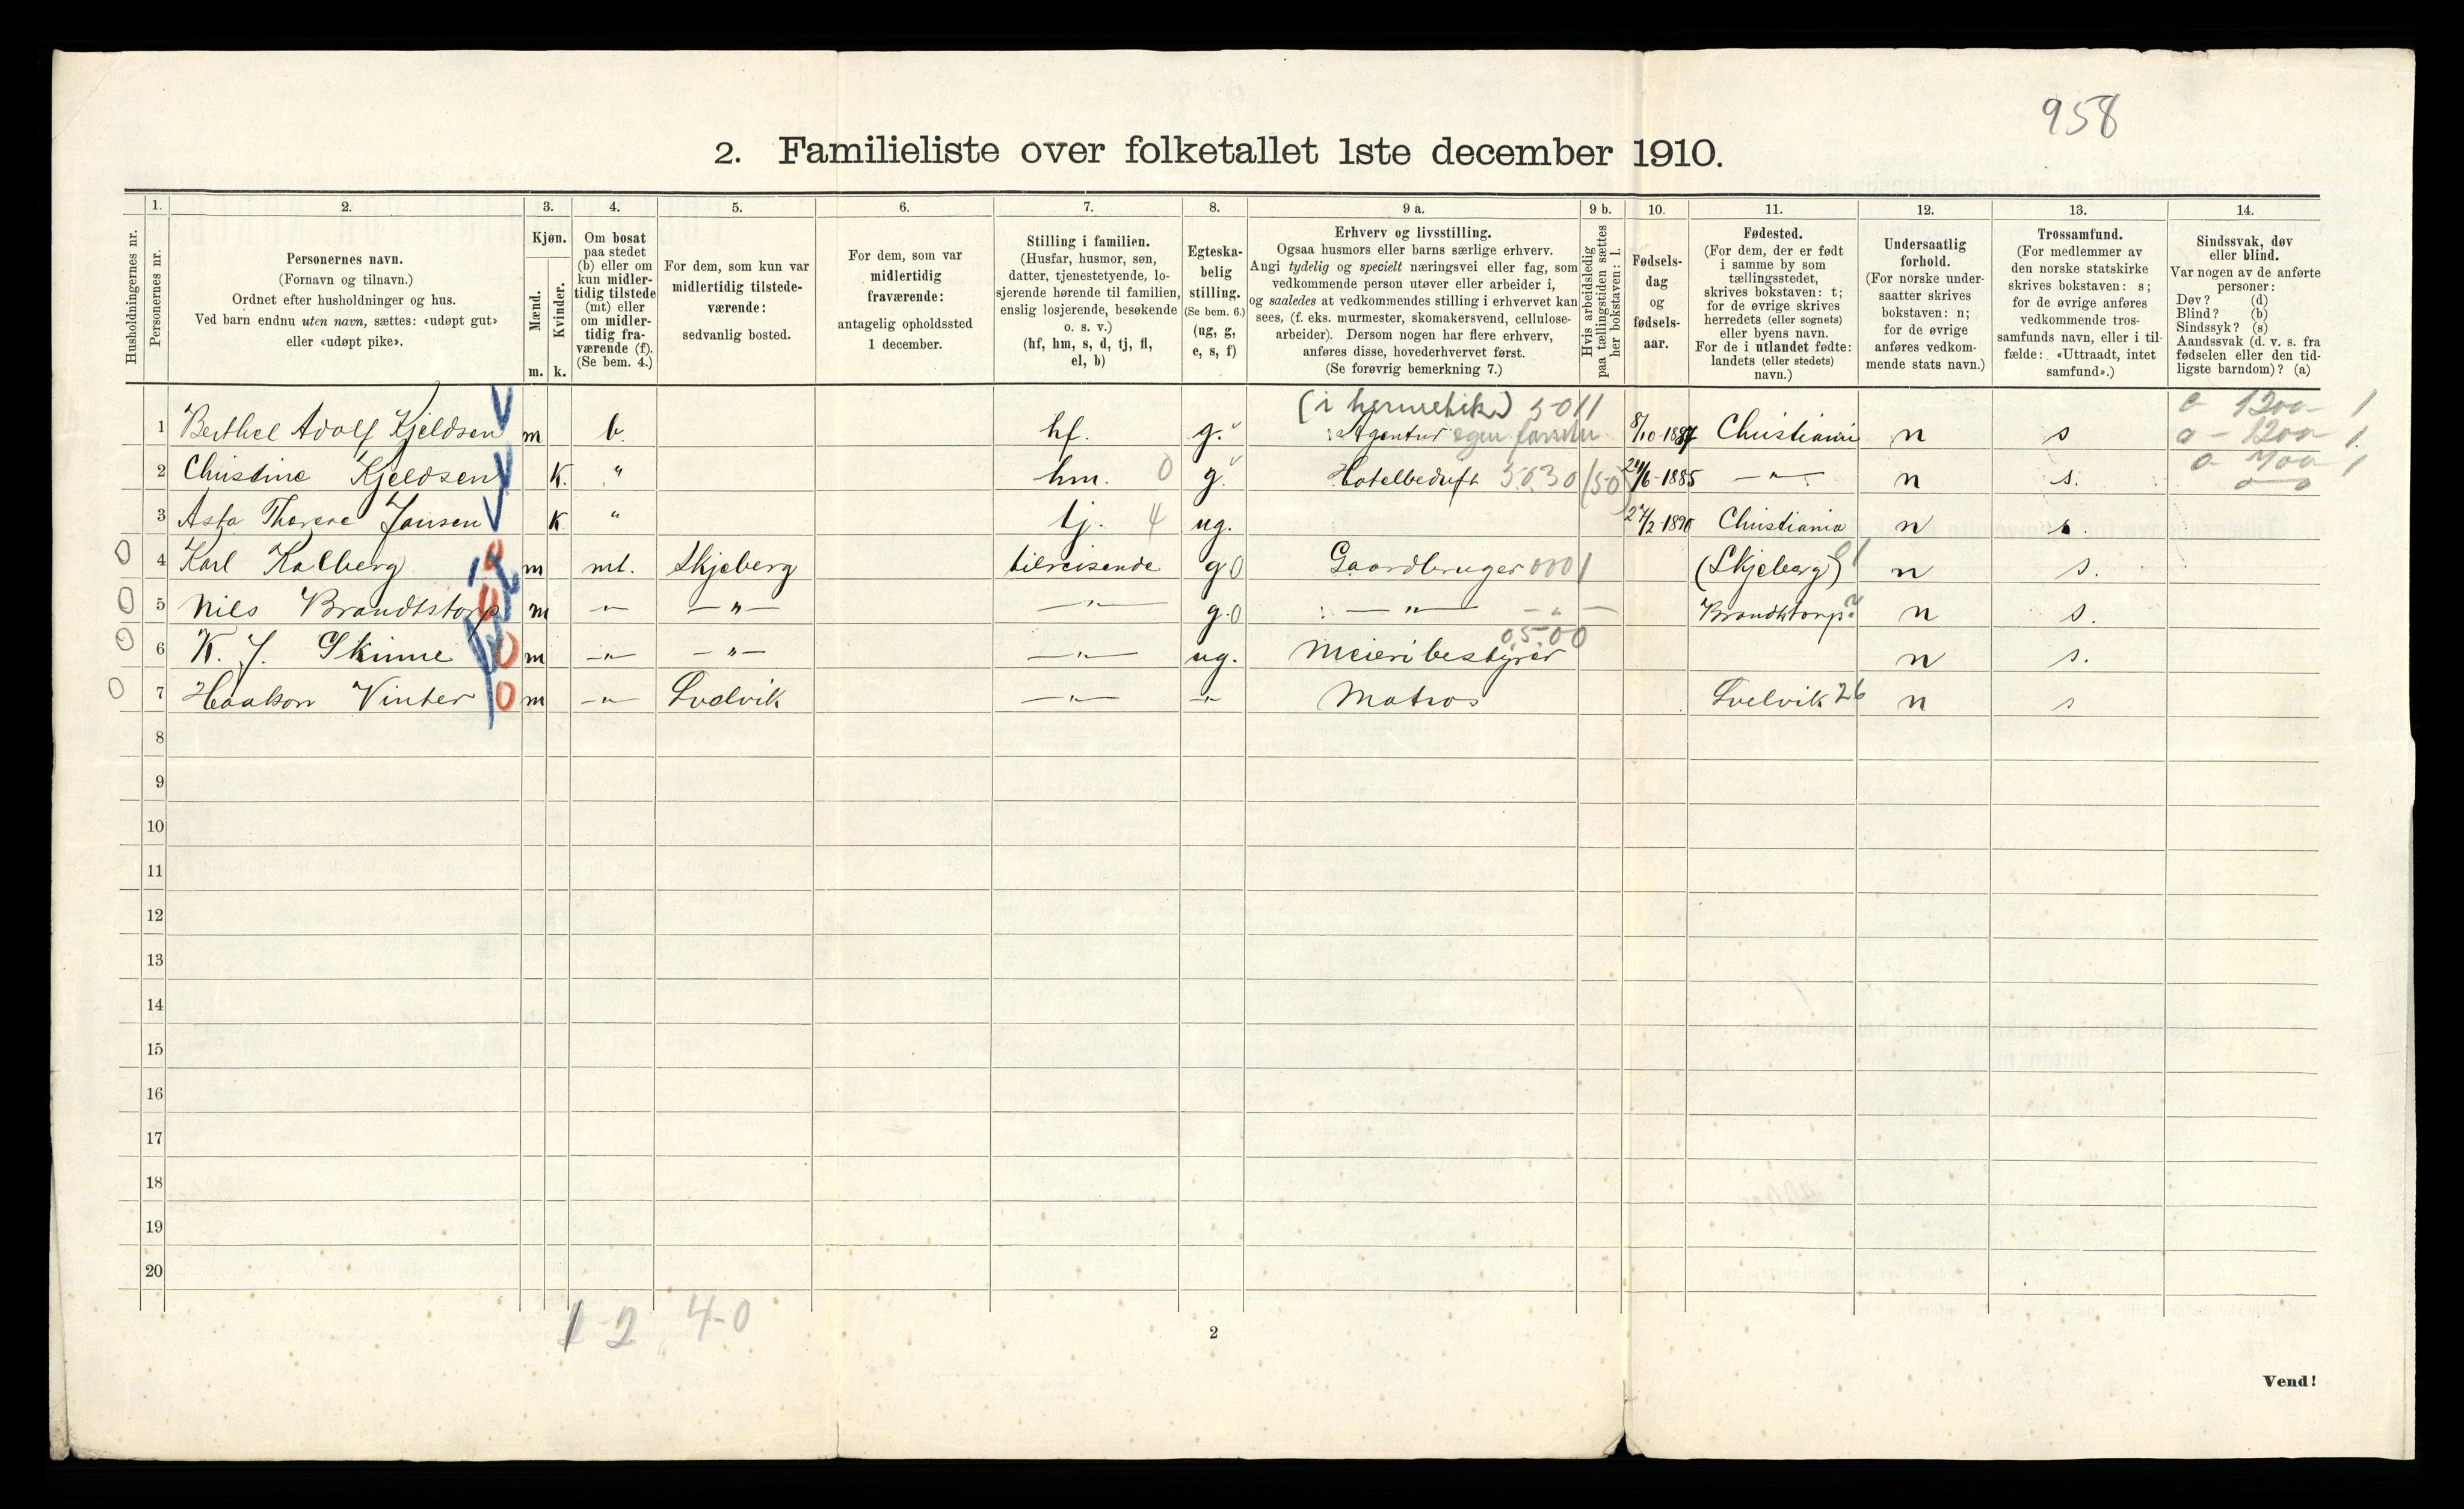 958
2. Familieliste over folketallet 1ste december 1910.
Husholdningernes nr.
Personernes nr.
1. 2. 3. 4. 5. 6. 7. 8. 9 a. 9 b. 10. 11. 12. 13. 14.
Personernes navn.
(Fornavn og tilnavn.)
Ordnet efter husholdninger og hus.
Ved barn endnu uten navn, sættes: «udøpt gut»
eller «udøpt pike».
Kjøn.
Mænd.
Kvinder.
m. k.
Om bosat
paa stedet
(b) eller om
kun midler-
tidig tilstede
(mt) eller
om midler-
tidig fra-
værende (f).
(Se bem. 4.)
For dem, som kun var
midlertidig tilstede-
værende:
sedvanlig bosted.
For dem, som var
midlertidig
fraværende:
antagelig opholdssted
1 december.
Stilling i familien.
(Husfar, husmor, søn,
datter, tjenestetyende, lo-
sjerende hørende til familien,
enslig losjerende, besøkende
o. s. v.)
(hf, hm, s, d, tj, fl,
el, b)
Egteska-
belig
stilling.
(Se bem. 6.)
(ug, g,
e, s, f)
Erhverv og livsstilling.
Ogsaa husmors eller barns særlige erhverv.
Angi tydelig og specielt næringsvei eller fag, som
vedkommende person utøver eller arbeider i,
og saaledes at vedkommendes stilling i erhvervet kan
sees, (f. eks. murmester, skomakersvend, cellulose-
arbeider). Dersom nogen har flere erhverv,
anføres disse, hovederhvervet først.
(Se forøvrig bemerkning 7.)
Hvis arbeidsledig
paa tællingstiden sættes
her bokstaven: l.
Fødsels-
dag
og
fødsels-
aar.
Fødested.
(For dem, der er født
i samme by som
tællingsstedet,
skrives bokstaven: t;
for de øvrige skrives
herredets (eller sognets)
eller byens navn.
For de i utlandet fødte:
landets (eller stedets)
navn.)
Undersaatlig
forhold.
(For norske under-
saatter skrives
bokstaven: n;
for de øvrige
anføres vedkom-
mende stats navn.)
Trossamfund.
(For medlemmer av
den norske statskirke
skrives bokstaven: s;
for de øvrige anføres
vedkommende tros-
samfunds navn, eller i til-
fælde: «Uttraadt, intet
samfund».)
Sindssvak, døv
eller blind.
Var nogen av de anførte
personer:
Døv? (d)
Blind? (b)
Sindssyk? (s)
Aandssvak (d. v. s. fra
fødselen eller den tid-
ligste barndom)? (a)
(i hermetik) 5011 0 1200 1
1 Berthel Adolf Kjeldsen m b. hf. g. Agentur egen 8/10-1887 Christiania n s 0 - 1200 1
0 400 1
2 Christine Kjeldsen K. " hm. 0 g. Hotelbedrift 5030 (50) 24/6-1885 — " — n s.
3 Asta Therese Jansen K " tj. 4 ug. 27/2-1890 Christiania n s.
0 4 Karl Kalberg m mt. Skjeberg tilreisende g 0 Gaardbruger 0001 (Skjeberg) 01 n s.
0 5 Nils Brandtstorp m — " — — " — — " — g. 0 — " — — " — Brandtstorp? n s.
0500
0 6 K. J. Skinne 0 m — " — — " — — " — ug. Meieribestyrer n s.
0 7 Haakon Vinter 0 m — " — Svelvik — " — — " — Matros Svelvik 26 n s
8
9
10
11
12
13
14
15
16
17
18
19
20
1-2 4-0
2
Vend!